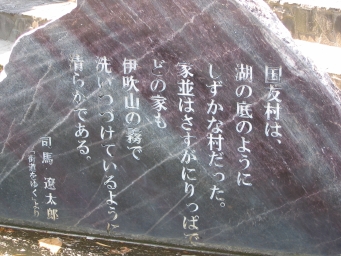 国友村は、
湖の底のように
しずかな村だった。
家並はさすがにりっぱで
どの家も
伊吹山の霧で
洗いつづけているように
清らかである。
司馬 遼太郎
「街道をゆく」より